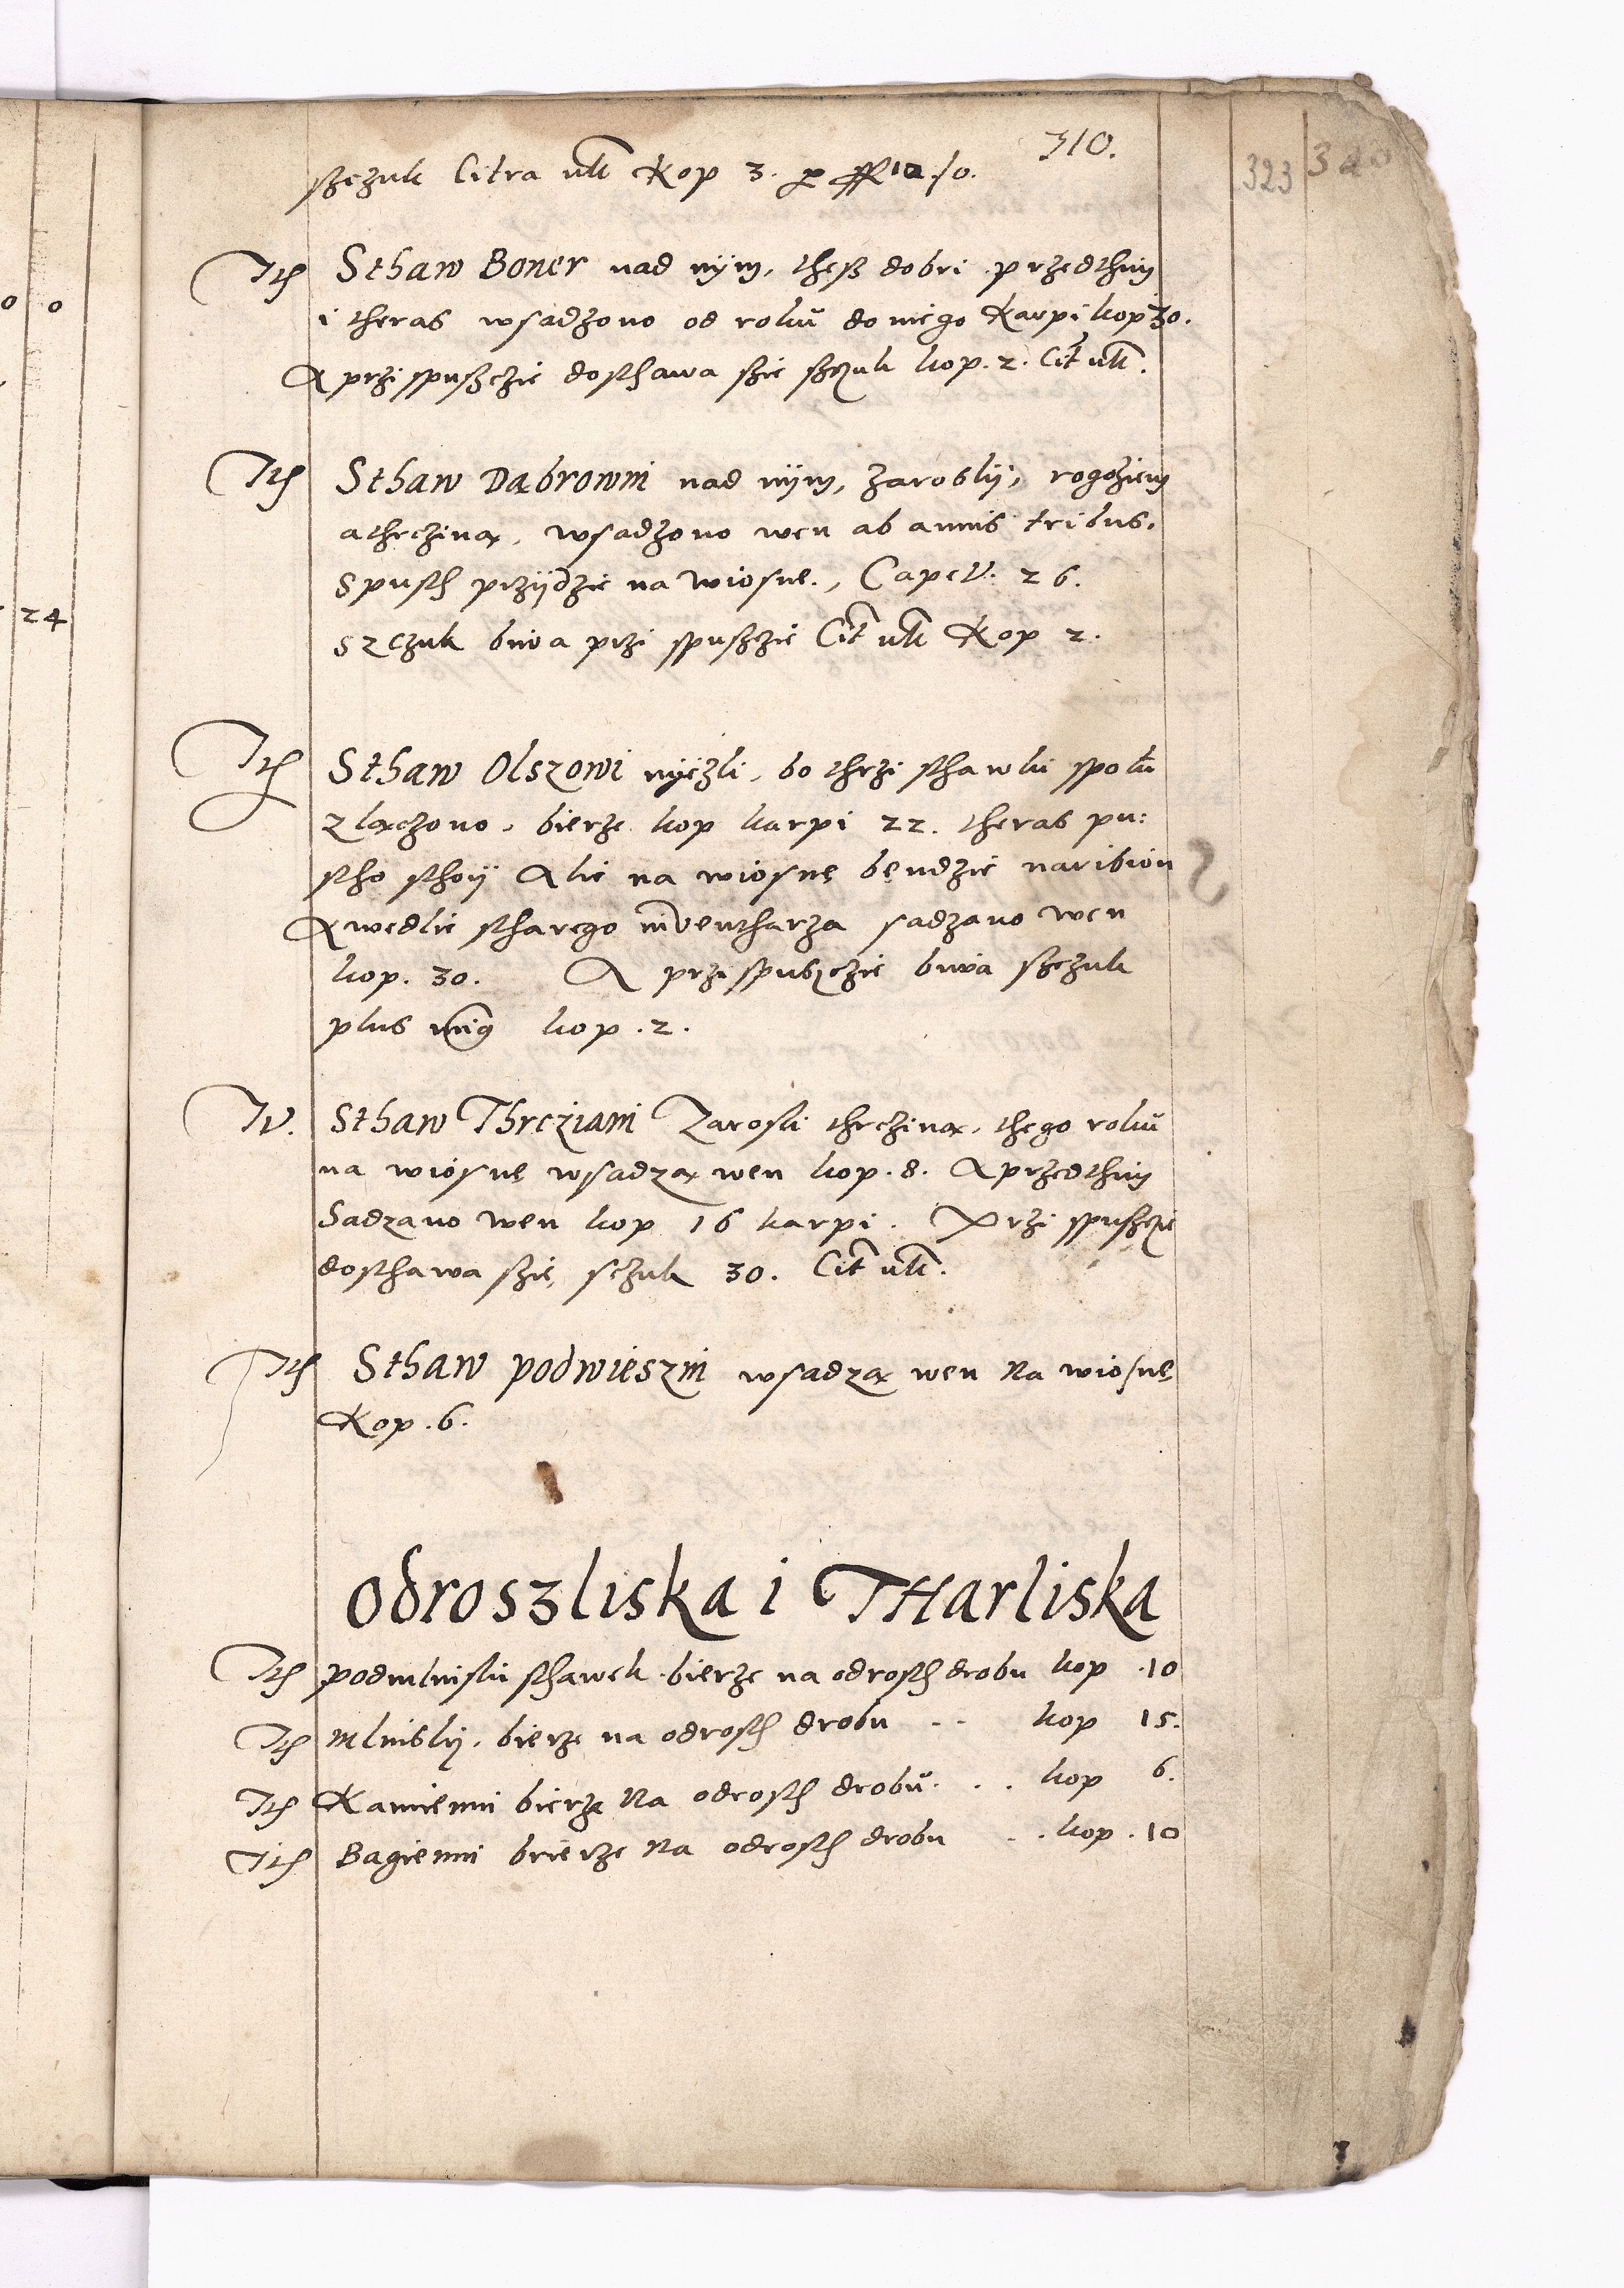 310.
323 320
sczuk Citra ult Kop 3. 
Ith Sthaw Boner nad nÿm, thesz dobri przedthim
i theras wsadzono od rokŭ do niego Karpi kop 30.
A przi spusczie dosthawa szie sczuk kop. 2. Cit ult.
Ith Sthaw Dąbrowni nad nÿm, zaroslÿ, rogoziem
a thrcziną, wsadzono wen ab annis tribus.
Spusth przÿdzie na wiosnę, Capet. 26.
szczuk biwa przi spuszcie Cit ult Kop 2.
Ith Sthaw Olszowi nÿczli, bo thrzi sthawki spolŭ
zlączono, bierze kop karpi 22. theras pu:
stho sthoÿ Alie na wiosnę bendzie naribion
A wedlie stharego inventharza sadzano wen
kop. 30. A przi spusczie biwa sczuk
plus min9 kop. 2.
It. Sthaw Thrcziani Zarosli thrcziną, thego rokŭ
na wiosnę wsadzą wen kop. 8. A przedthim
Sadzano wen kop 16 karpi. Przi spusczie
dosthawa szię sczuk 30. Cit ult.
Ith Sthaw podwieszni wsadzą wen Na wiosnę
Kop. 6.
Odroszliska i THarliska
Ith podmlniski sthawek bierze na odrosth drobu kop .10
Ith mlniskÿ, bierze na odrosth drobu .. kop 15.
Ith Kamienni bierze Na odrosth drobŭ. . . kop 6.
Ith Bagienni bierze Na odrosth drobu . . kop . 10
0 0
24